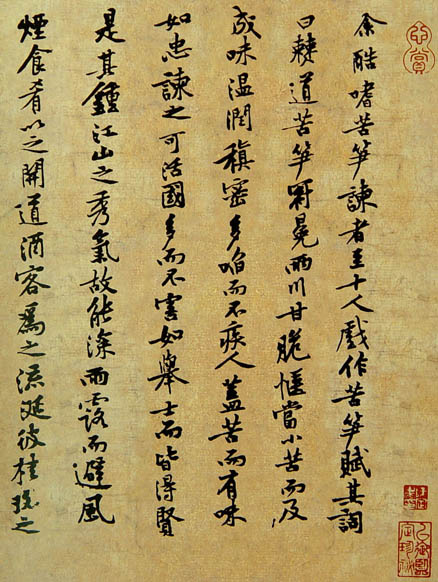 余酷嗜苦笋諫者至十人戲作苦笋賦其詞
曰僰道苦笋冠冕兩川甘脆愜當小苦而反
成味溫潤稹密多啗而不疾人蓋苦而有味
如忠諫之可活國多而不害如舉士而皆得賢
是其鍾江山之秀氣故能深雨露而避風
煙食肴以之開道酒客爲之流涎彼桂斑之
心賞